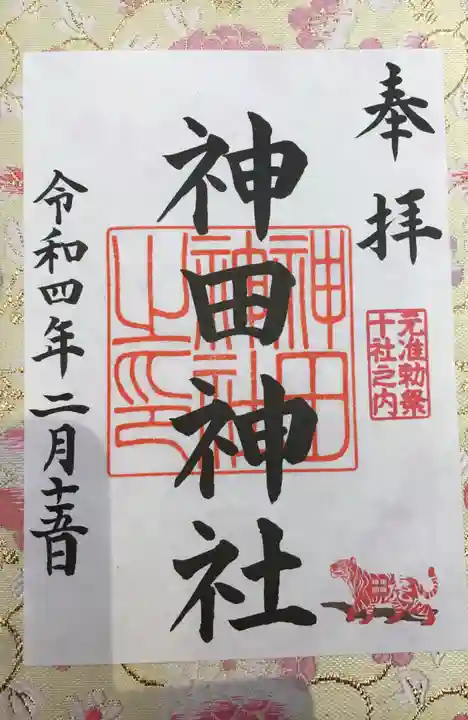 奉拝
元准勅祭
十社之内
神田神社
神田
神社
之印
令和四年二月十五日